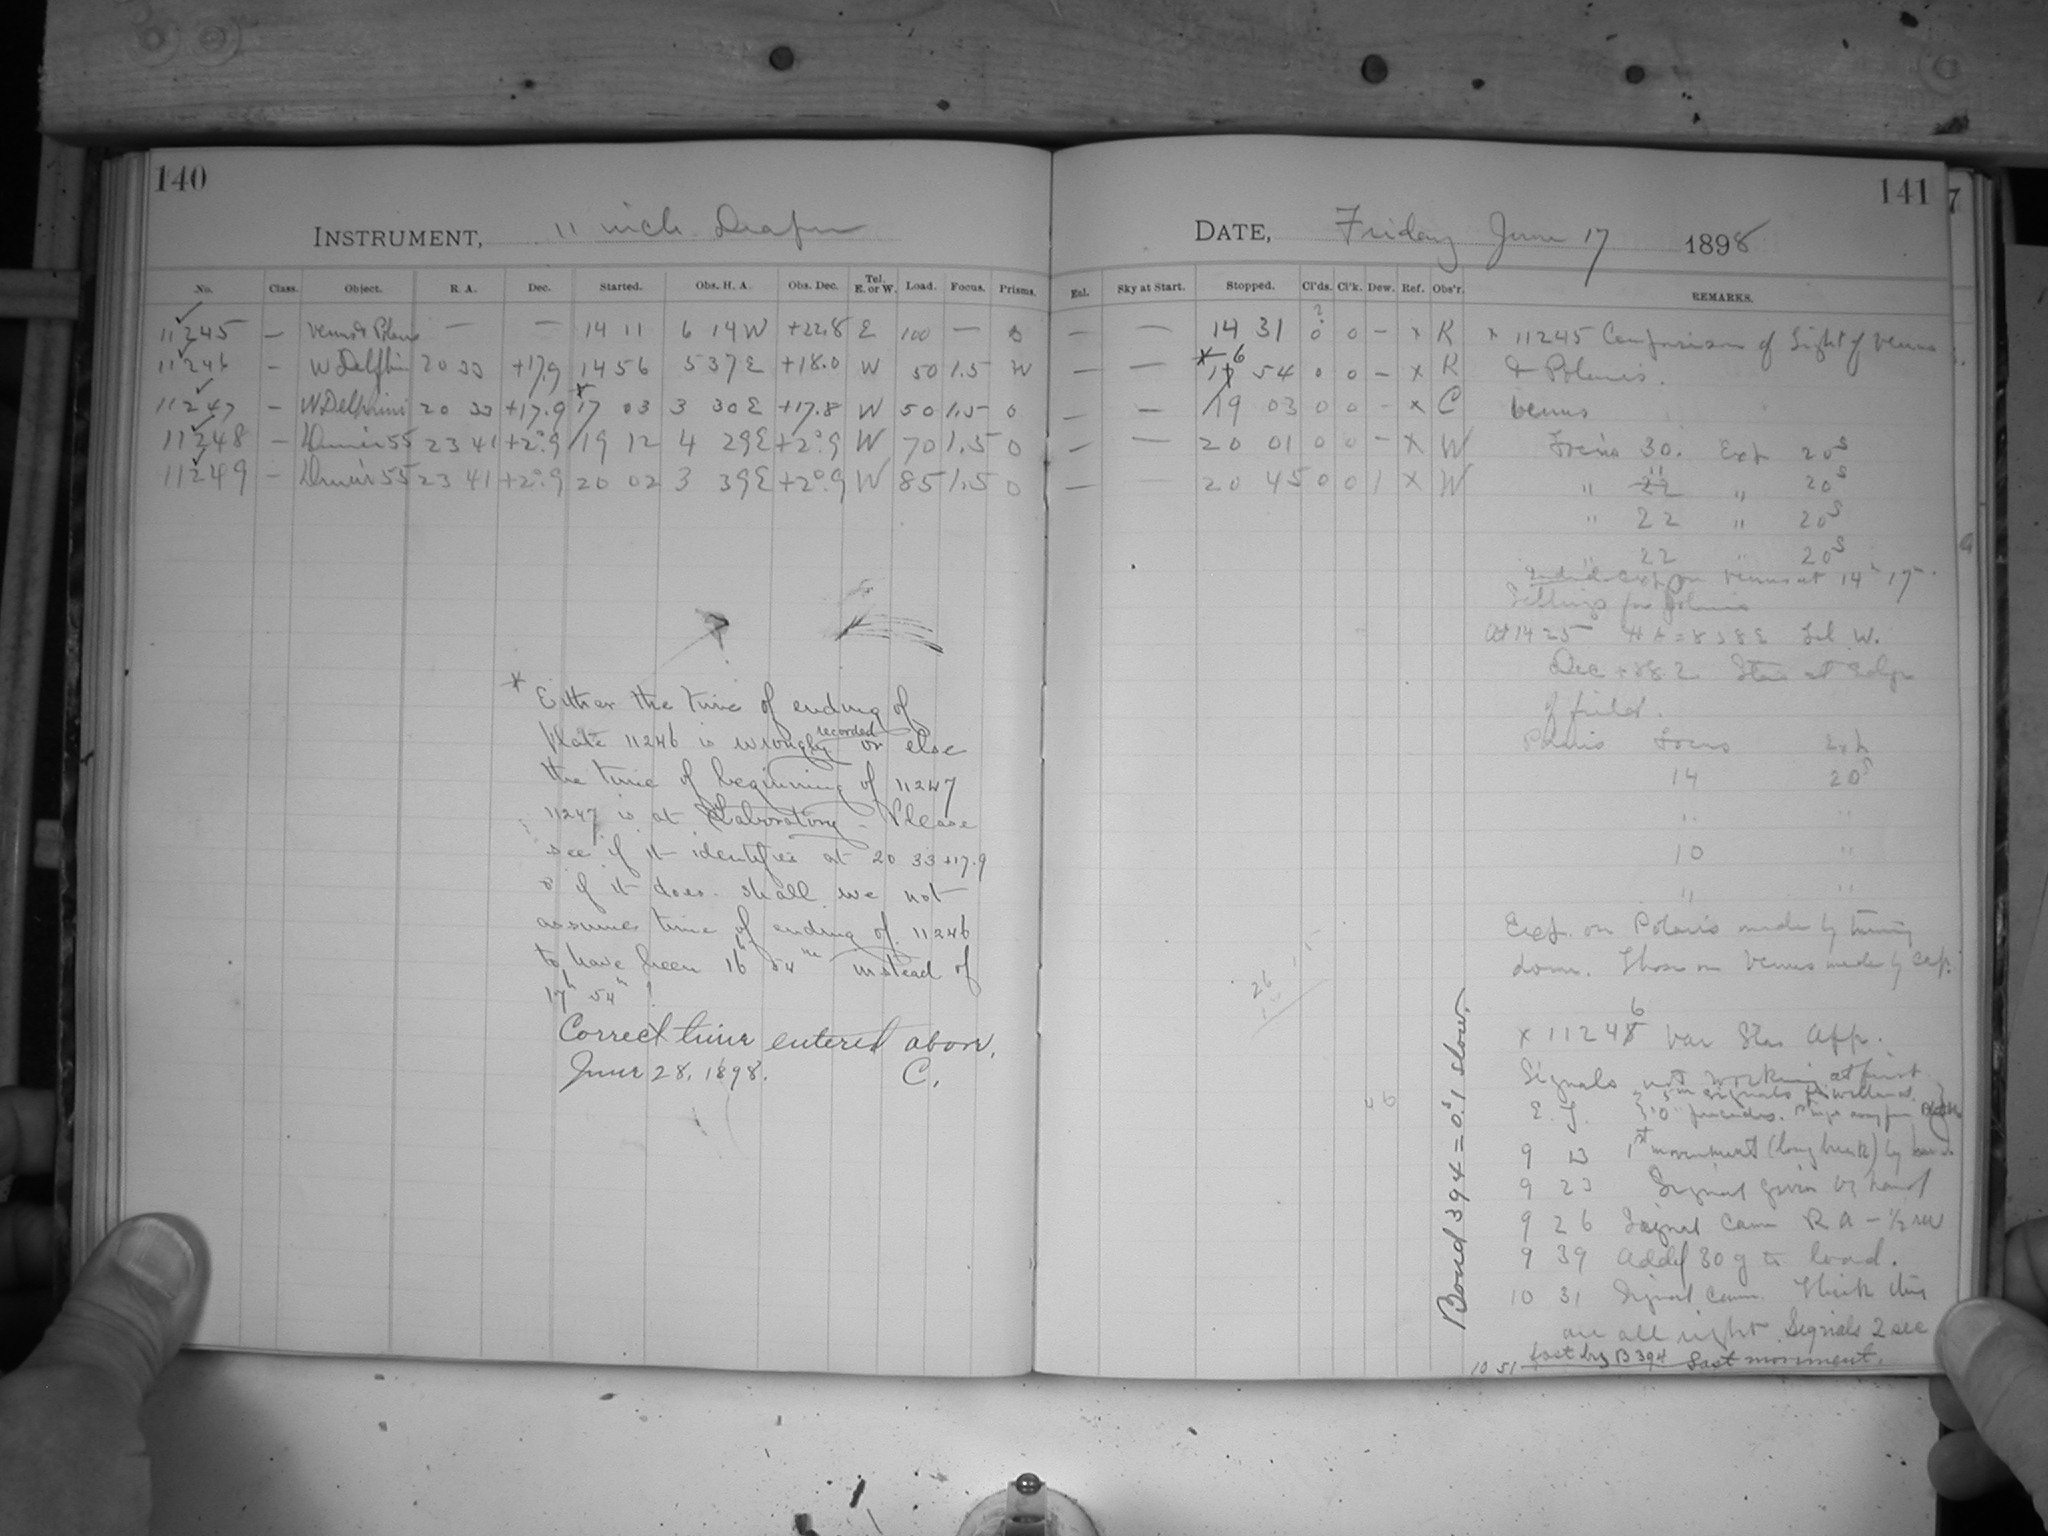 140
INSTRUMENT, 11 inch Draper
No. Class. Object. R. A. Dec. Started. Obs. H. A. Obs. Dec. Tel. E. or W. Load. Focus. Prisms.
11245 — Venus & Polaris — — 14 11 6 14 W +22.8 E 100 — 0
11246 — W Delphin 20 33 +17.9 14 56 5 37 E +18.0 W 50 1.5 W
11247 — W Delphini 20 33 +17.9 * 17 03 3 30 E +17.8 W 50 1.5 0
11248 — Dunér 55 23 41 +2°.9 19 12 4 29 E +2°.9 W 70 1.5 0
11249 — Dunér 55 23 41 +2°.9 20 02 3 39 E +2°.9 W 85 1.5 0
* Either the time of ending of
Plate 11246 is wrongly recorded or else
the time of beginning of 11247
11247 is at Laboratory. Please
see if it identifies at 20 33 +17.9
& if it does. shall we not
assume time of ending of 11246
to have been 16h 54m instead of
17h 54m?
Correct time entered above.
June 28, 1898. C.
141
DATE, Friday June 17 1898
Enl. Sky at Start. Stopped. Cl'ds. Cl'k. Dew. Ref. Obs'r. REMARKS.
— — 14 31 0? 0 – x K x 11245 Comparison of Light of Venus
— — * 16 54 0 0 – x K & Polaris.
— — 19 03 0 0 – x C Venus
— — 20 01 0 0 – x W Focus 30. Exp 20s
— — 20 45 0 0 1 x W " 22 " 20s
" 22 " 20s
" 22 " 20s
exp. on Venus at 14h 17m.
Settings for Polaris
At 14 25 HA = 8 38 E Tel W.
Dec +88.2 Star at edge
of field.
Polaris Focus Exp
14 20s
" "
10 "
" "
Exp. on Polaris made by turning
down. Those on Venus made by cap.
26
x 11246 Var Star App.
Signals not working at first
E. T.
9 13 1st movement (long break) by hand.
9 23 Signal given by hand
9 26 Signal came R A – ½ rev
9 39 Added 30 g to load.
10 31 Signal came. Think they
are all right. Signals 2 sec
10 51 fast by B 394 Last movement.
Bond 394 = 0s.1 slow.